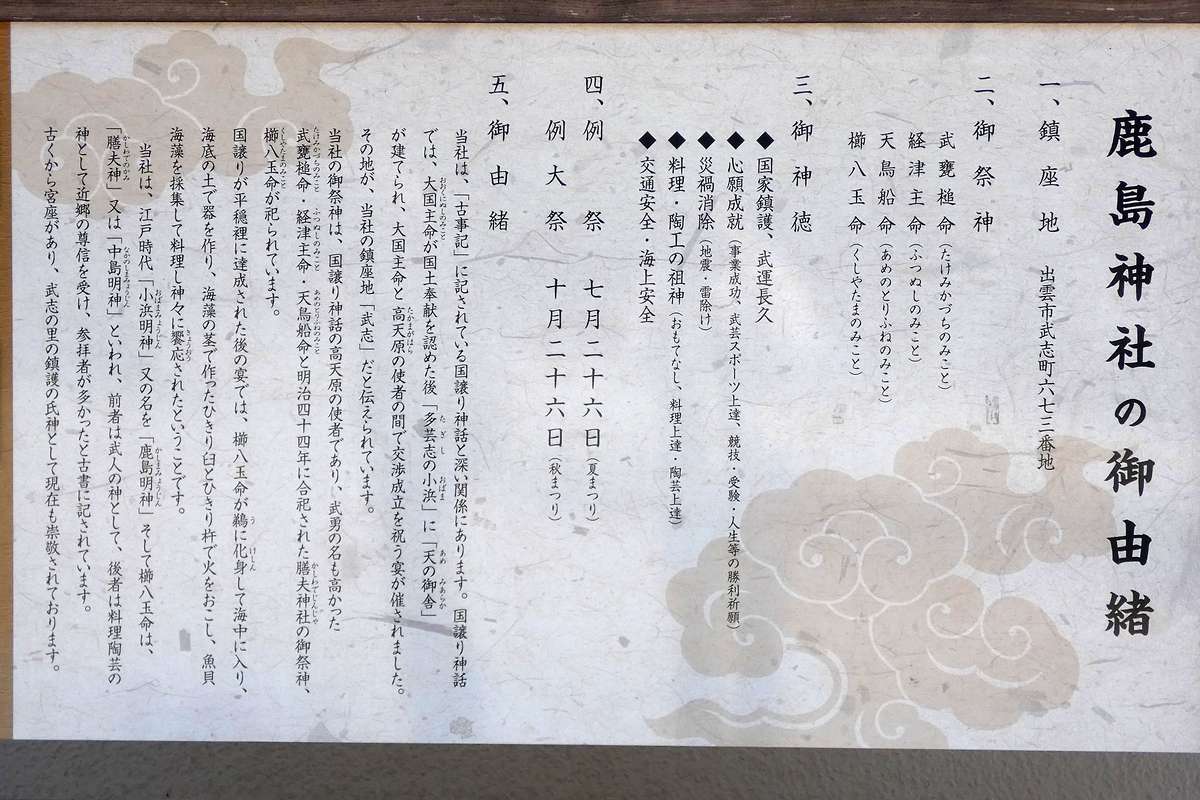 鹿島神社の御由緒
一、鎮座地　出雲市武志町六七三番地
二、御祭神
武甕槌命（たけみかづちのみこと）
経津主命（ふつぬしのみこと）
天鳥船命（あめのとりふねのみこと）
櫛八玉命（くしやたまのみこと）
三、御神徳
◆国家鎮護、武運長久
◆心願成就（事業成功、武芸スポーツ上達、競技・受験・人生等の勝利祈願）
◆災禍消除（地震・雷除け）
◆料理・陶工の祖神（おもてなし、料理上達・陶芸上達）
◆交通安全・海上安全
四、例祭　七月二十六日（夏まつり）
例大祭　十月二十六日（秋まつり）
五、御由緒
当社は、「古事記」に記されている国譲り神話と深い関係にあります。国譲り神話
では、大国主命が国土奉献を認めた後「多芸志の小浜」に「天の御舎」
が建てられ、大国主命と高天原の使者の間で交渉成立を祝う宴が催されました。
その地が、当社の鎮座地「武志」だと伝えられています。
当社の御祭神は、国譲り神話の高天原の使者であり、武勇の名も高かった
武甕槌命・経津主命・天鳥船命と明治四十四年に合祀された膳夫神社の御祭神、
櫛八玉命が祀られています。
国譲りが平穏裡に達成された後の宴では、櫛八玉命が鵜に化身して海中に入り、
海底の土で器を作り、海藻の茎で作ったひきり臼とひきり杵で火をおこし、魚貝
海藻を採集して料理し神々に饗応されたということです。
当社は、江戸時代「小浜明神」又の名を「鹿島明神」そして櫛八玉命は、
「膳夫神」又は「中島明神」といわれ、前者は武人の神として、後者は料理陶芸の
神として近郷の尊信を受け、参拝者が多かったと古書に記されています。
古くから宮座があり、武志の里の鎮護の氏神として現在も崇敬されております。